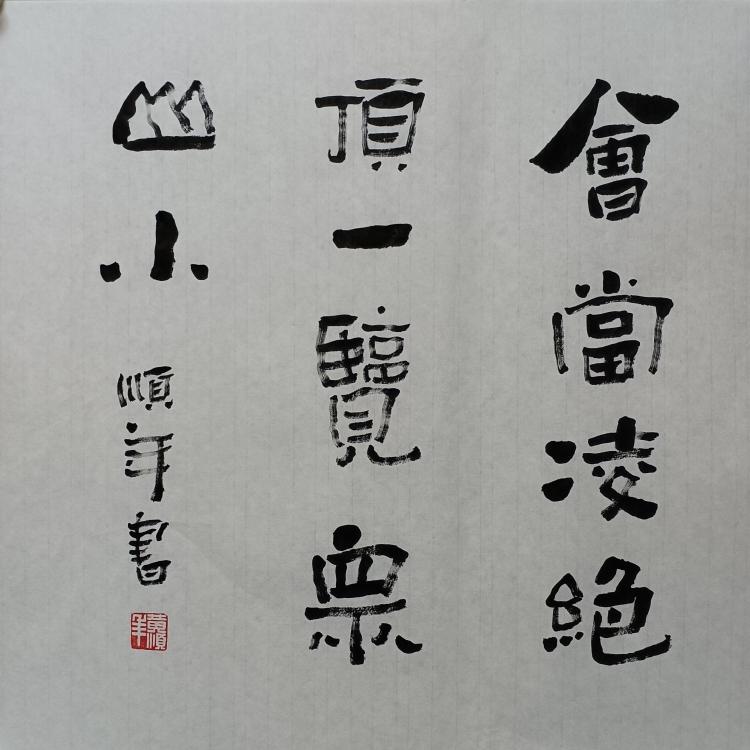 會當凌絕
頂一覽眾
山小
順年書
黃順年